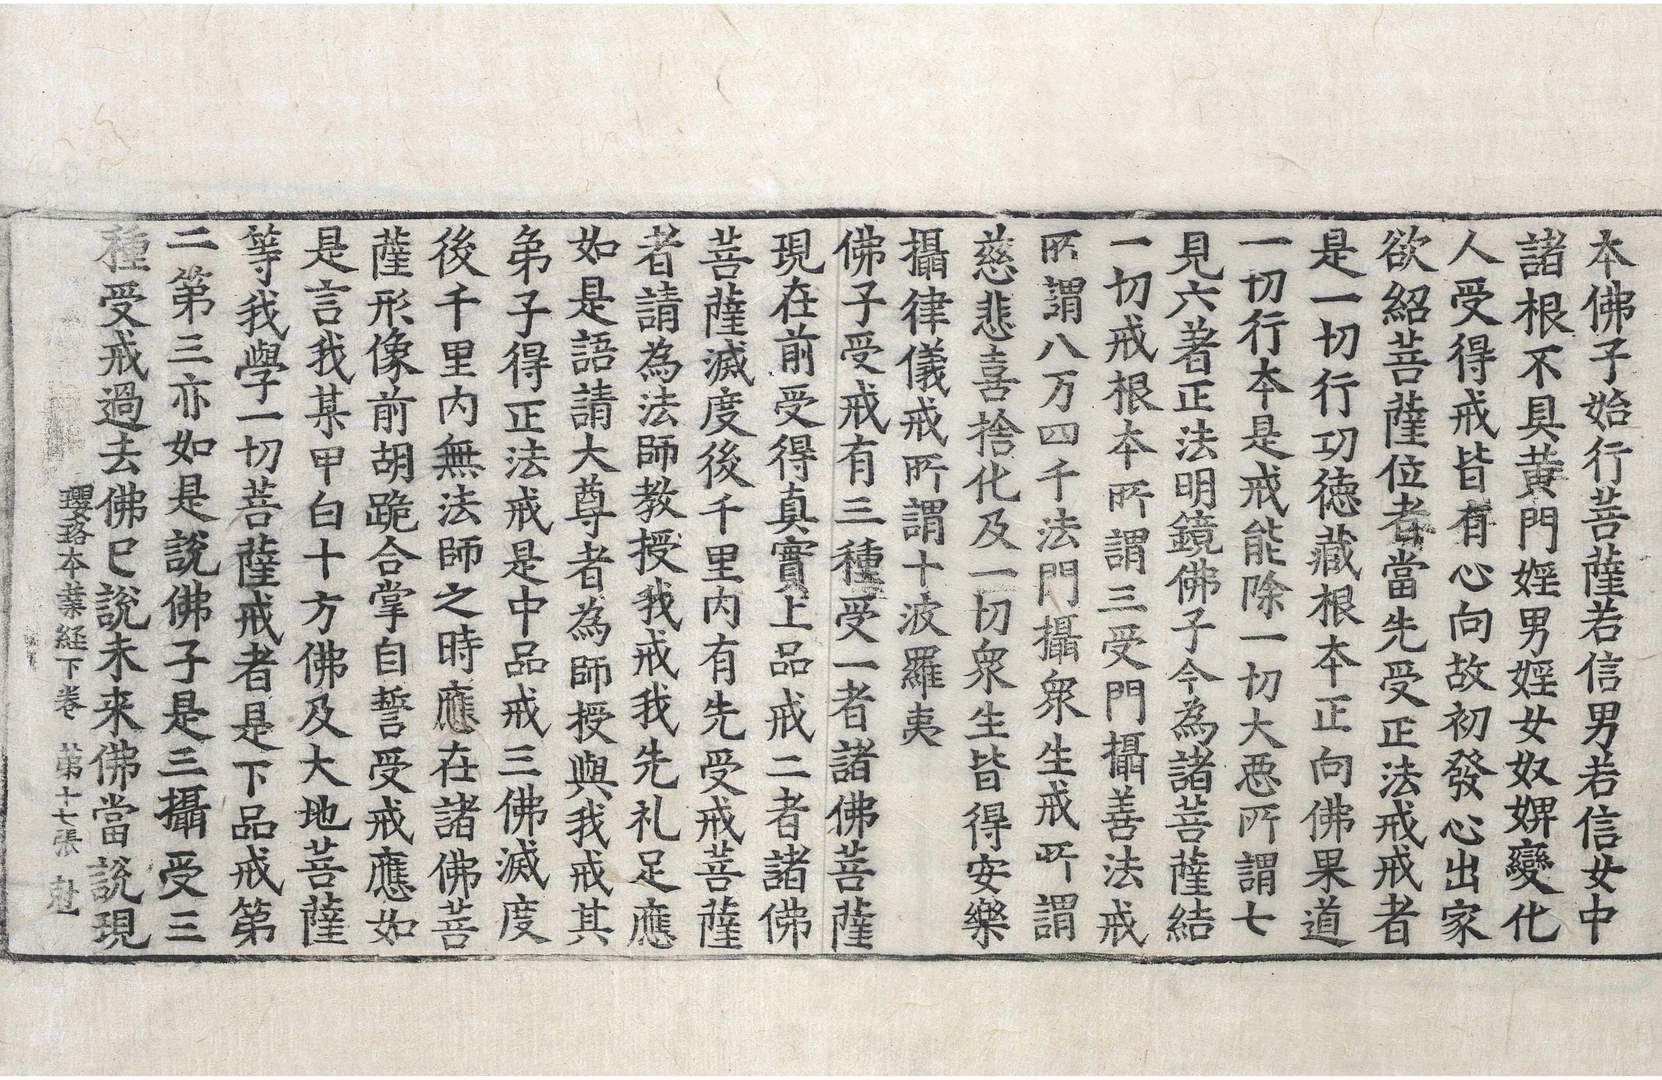 本佛子始行菩薩若信男若信女中
諸根不具黃門婬男婬女奴婢變化
人受得戒皆有心向故初發心出家
欲紹菩薩位者當先受正法戒戒者
是一切行功德藏根本正向佛果道
一切行本是戒能除一切大惡所謂七
見六著正法明鏡佛子今為諸菩薩結
一切戒根本所謂三受門攝善法戒
所謂八万四千法門攝衆生戒所謂
慈悲喜捨化及一切衆生皆得安樂
攝律儀戒所謂十波羅夷
佛子受戒有三種受一者諸佛菩薩
現在前受得真實上品戒二者諸佛
菩薩滅度後千里内有先受戒菩薩
者請為法師教授我戒我先礼足應
如是語請大尊者為師授與我戒其
弟子得正法戒是中品戒三佛滅度
後千里内無法師之時應在諸佛菩
薩形像前胡跪合掌自誓受戒應如
是言我某甲白十方佛及大地菩薩
等我學一切菩薩戒者是下品戒第
二第三亦如是說佛子是三攝受三
種受戒過去佛已說未来佛當說現
瓔珞本業経下卷 第十七張